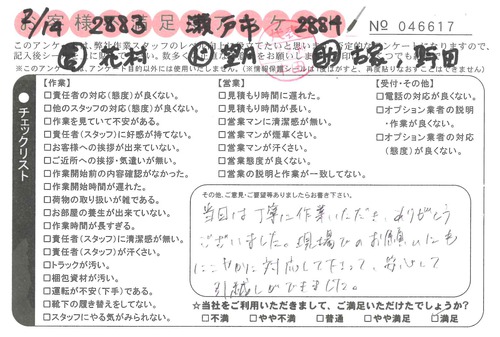 2/14 2883 瀬戸市 2884
お客様満足アンケート
№ 046617
このアンケートは、弊社作業スタッフのレベル向上に役立てたいと思います。
※このアンケートは、アンケート目的以外には使いいたしません。(※情報保護シールは1度はがすと、再度貼りなおすことはできません)
北村 望月 古家、野田
チェックリスト
【作業】
□責任者の対応(態度)が良くない。
□他のスタッフの対応(態度)が良くない。
□作業を見ていて不安がある。
□責任者(スタッフ)に好感が持てない。
□お客様への挨拶が出来ていない。
□ご近所への挨拶・気遣いが無い。
□作業開始前の内容確認がなかった。
□作業開始時間が遅れた。
□荷物の取り扱いが雑である。
□お部屋の養生が出来ていない。
□作業時間が長すぎる。
□責任者(スタッフ)に清潔感が無い。
□責任者(スタッフ)が汗くさい。
□トラックが汚い。
□梱包資材が汚い。
□運転が不安(下手)である。
□靴下の履き替えをしてない。
□スタッフにやる気がみられない。
【営業】
□見積もり時間に遅れた。
□見積もり時間が長い。
□営業マンに清潔感が無い。
□営業マンが煙草くさい。
□営業マンが汗くさい。
□営業態度が良くない。
□営業の説明と作業が一致してない。
【受付・その他】
□電話の対応が良くない。
□オプション業者の説明
・作業が良くない。
□オプション業者の対応
(態度)が良くない。
その他、ご意見・ご要望等ありましたらお書き下さい。
当日は丁寧に作業いただき、ありがとう
ございました。現場でのお願いにも
にこやかに対応して下さって、安心して
引越しができました。
☆当社をご利用いただきまして、ご満足いただけたでしょうか?
□不満 □やや不満 □普通 □やや満足 □満足